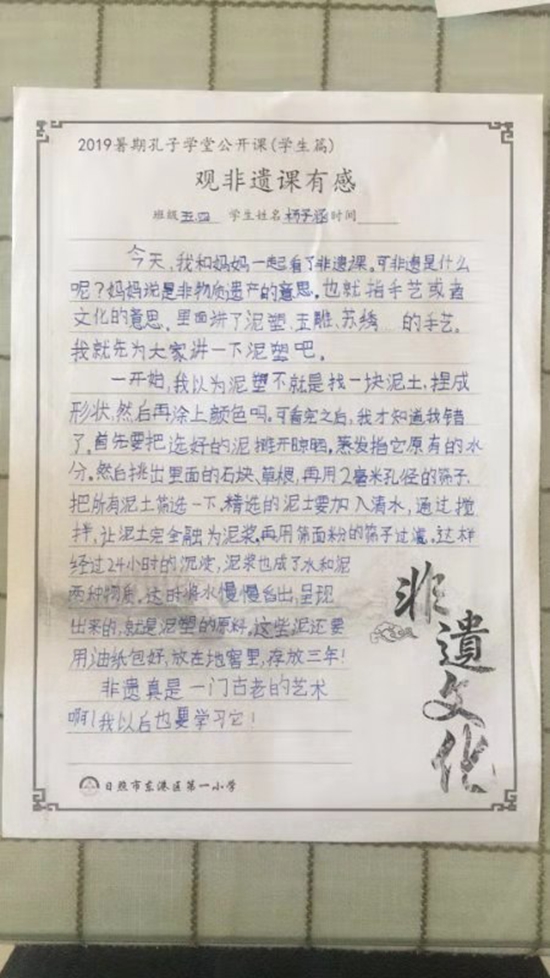 2019暑期孔子学堂公开课(学生篇)
观非遗课有感
班级五.四 学生姓名杨子涵时间
今天,我和妈妈一起看了非遗课。可非遗是什么
呢?妈妈说是非物质遗产的意思。也就指手艺或者
文化的意思。里面讲了泥塑、玉雕、苏绣…的手艺。
我就先为大家讲一下泥塑吧。
一开始,我以为泥塑不就是找一块泥土,捏成
形状,然后再涂上颜色吗。可看完之后,我才知道我错
了。首先要把选好的泥摊开晾晒,蒸发指它原有的水
分。然白挑出里面的石块、草梗,再用2毫米孔径的筛子,
把所有泥土筛选一下。精选的泥土要加入清水,通过搅
拌,让泥土完全融为泥浆。再用筛面粉的筛子过滤。这样
经过24小时的沉淀,泥浆也成了水和泥
两种物质。这时将水慢慢舀出,呈现
出来的,就是泥塑的原料。这些泥还要
用油纸包好,放在地窖里,存放三年!
非遗真是一门古老的艺术
啊!我以后也要学习它!
非遺文化
日照市东港区第一小学